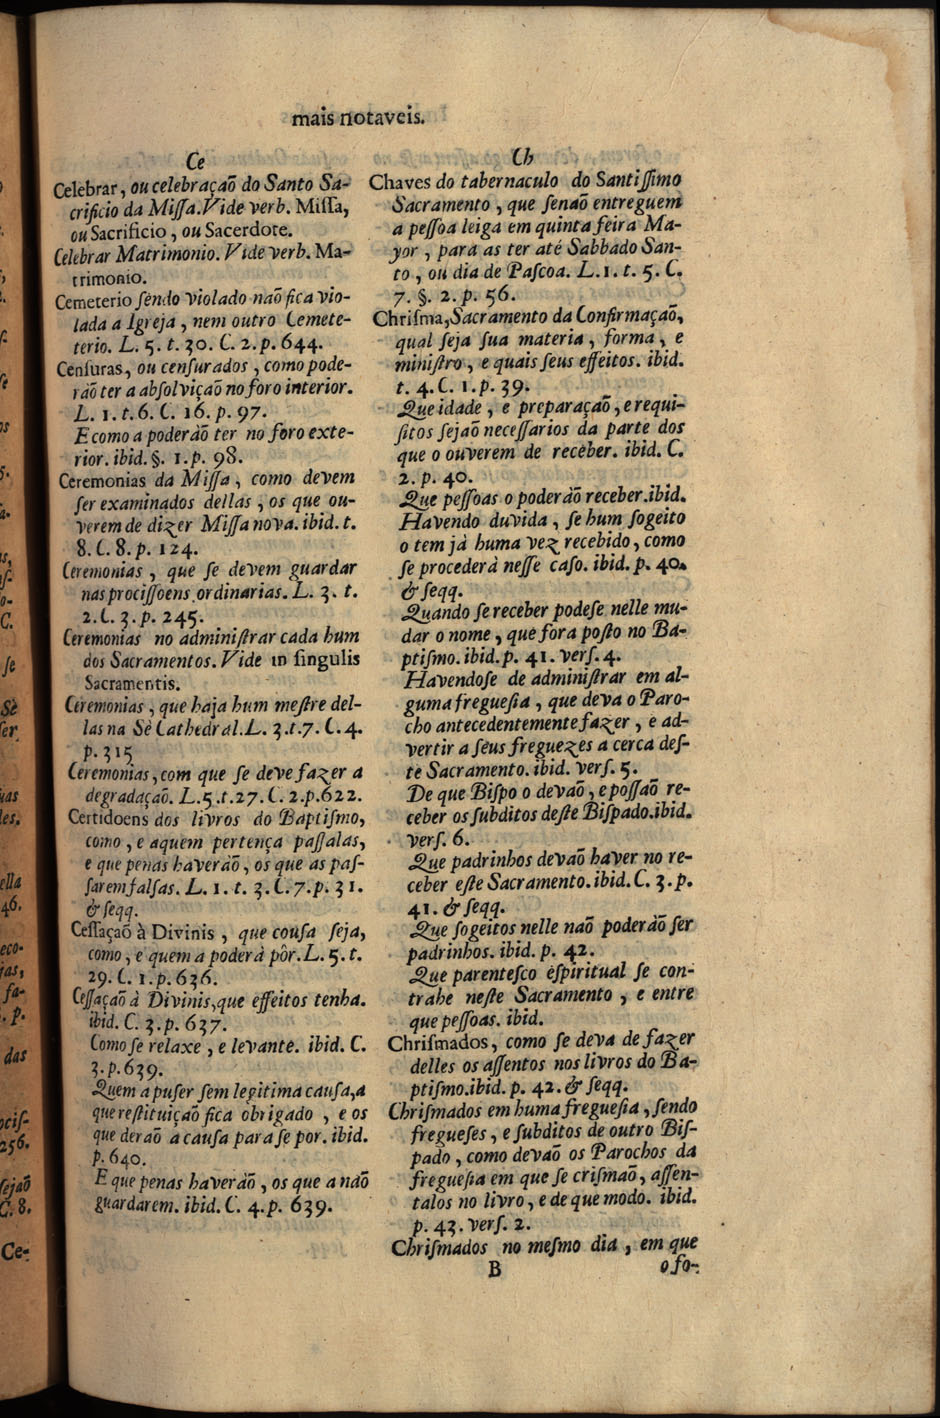 mais notaveis.
Ce
Celebrar, ou celebraçaõ do Santo Sa-
crificio da Miſſa. Vide verb. Miſſa,
ou Sacrificio, ou Sacerdote.
Celebrar Matrimonio. Vide verb. Ma-
trimonio.
Cemeterio ſendo violado naõ fica vio-
lada a Igreja, nem outro Cemete-
terio. L. 5. t. 30. C. 2. p. 644.
Cenſuras, ou cenſurados, como pode-
ràõ ter a abſolviçaõ no foro interior.
L. 1. t. 6. C. 16. p. 97.
E como a poderàõ ter no foro exte-
rior. ibid. §. 1. p. 98.
Ceremonias da Miſſa, como devem
ſer examinados dellas, os que ou-
verem de dizer Miſſa nova. ibid. t.
8. C. 8. p. 124.
Ceremonias, que ſe devem guardar
nas prociſſoens ordinarias. L. 3. t.
2. C. 3. p. 245.
Ceremonias no adminiſtrar cada hum
dos Sacramentos. Vide in ſingulis
Sacramentis.
Ceremonias, que haja hum meſtre del-
las na Sè Cathedral. L. 3. t. 7. C. 4.
p. 315
Ceremonias, com que ſe deve fazer a
degradaçaõ. L. 5. t. 27. C. 2. p. 622.
Certidoens dos livros do Baptiſmo,
como, e aquem pertença paſſalas,
e que penas haveràõ, os que as paſ-
ſarem falſas. L. 1. t. 3. C. 7. p. 31.
& ſeqq.
Ceſſaçaõ à Divinis, que couſa ſeja,
como, e quem a poderà pôr. L. 5. t.
29. C. 1. p. 636.
Ceſſaçaõ à Divinis, que effeitos tenha.
ibid. C. 3. p. 637.
Como ſe relaxe, e levante. ibid. C.
3. p. 639.
Quem a puſer ſem legitima cauſa, a
que reſtituiçaõ fica obrigado, e os
que deraõ a cauſa para ſe por. ibid.
p. 640.
E que penas haveràõ, os que a naõ
guardarem. ibid. C. 4. p. 639.
Ch
Chaves do tabernaculo do Santiſſimo
Sacramento, que ſenaõ entreguem
a peſſoa leiga em quinta feira Ma-
yor, para as ter até Sabbado San-
to, ou dia de Paſcoa. L. 1. t. 5. C.
7. §. 2. p. 56.
Chriſma, Sacramento da Confirmaçaõ,
qual ſeja ſua materia, forma, e
miniſtro, e quais ſeus effeitos. ibid.
t. 4. C. 1. p. 39.
Que idade, e preparaçaõ, e requi-
ſitos ſejaõ neceſſarios da parte dos
que o ouverem de receber. ibid. C.
2. p. 40.
Que peſſoas o poderàõ receber. ibid.
Havendo duvida, ſe hum ſogeito
o tem jà huma vez recebido, como
ſe procederà neſſe caſo. ibid. p. 40.
& ſeqq.
Quando ſe receber podeſe nelle mu-
dar o nome, que fora poſto no Ba-
ptiſmo. ibid. p. 41. verſ. 4.
Havendoſe de adminiſtrar em al-
guma fregueſia, que deva o Paro-
cho antecedentemente fazer, e ad-
vertir a ſeus freguezes a cerca deſ-
te Sacramento. ibid. verſ. 5.
De que Biſpo o devaõ, e poſſaõ re-
ceber os ſubditos deſte Biſpado. ibid.
verſ. 6.
Que padrinhos devaõ haver no re-
ceber eſte Sacramento. ibid. C. 3. p.
41. & ſeqq.
Que ſogeitos nelle naõ poderàõ ſer
padrinhos. ibid. p. 42.
Que parenteſco eſpiritual ſe con-
trahe neſte Sacramento, e entre
que peſſoas. ibid.
Chriſmados, como ſe deva de fazer
delles os aſſentos nos livros do Ba-
ptiſmo. ibid. p. 42. & ſeqq.
Chriſmados em huma fregueſia, ſendo
fregueſes, e ſubditos de outro Biſ-
pado, como devaõ os Parochos da
fregueſia em que ſe criſmaõ, aſſen-
talos no livro, e de que modo. ibid.
p. 43. verſ. 2.
Chriſmados no meſmo dia, em que
B
o fo-